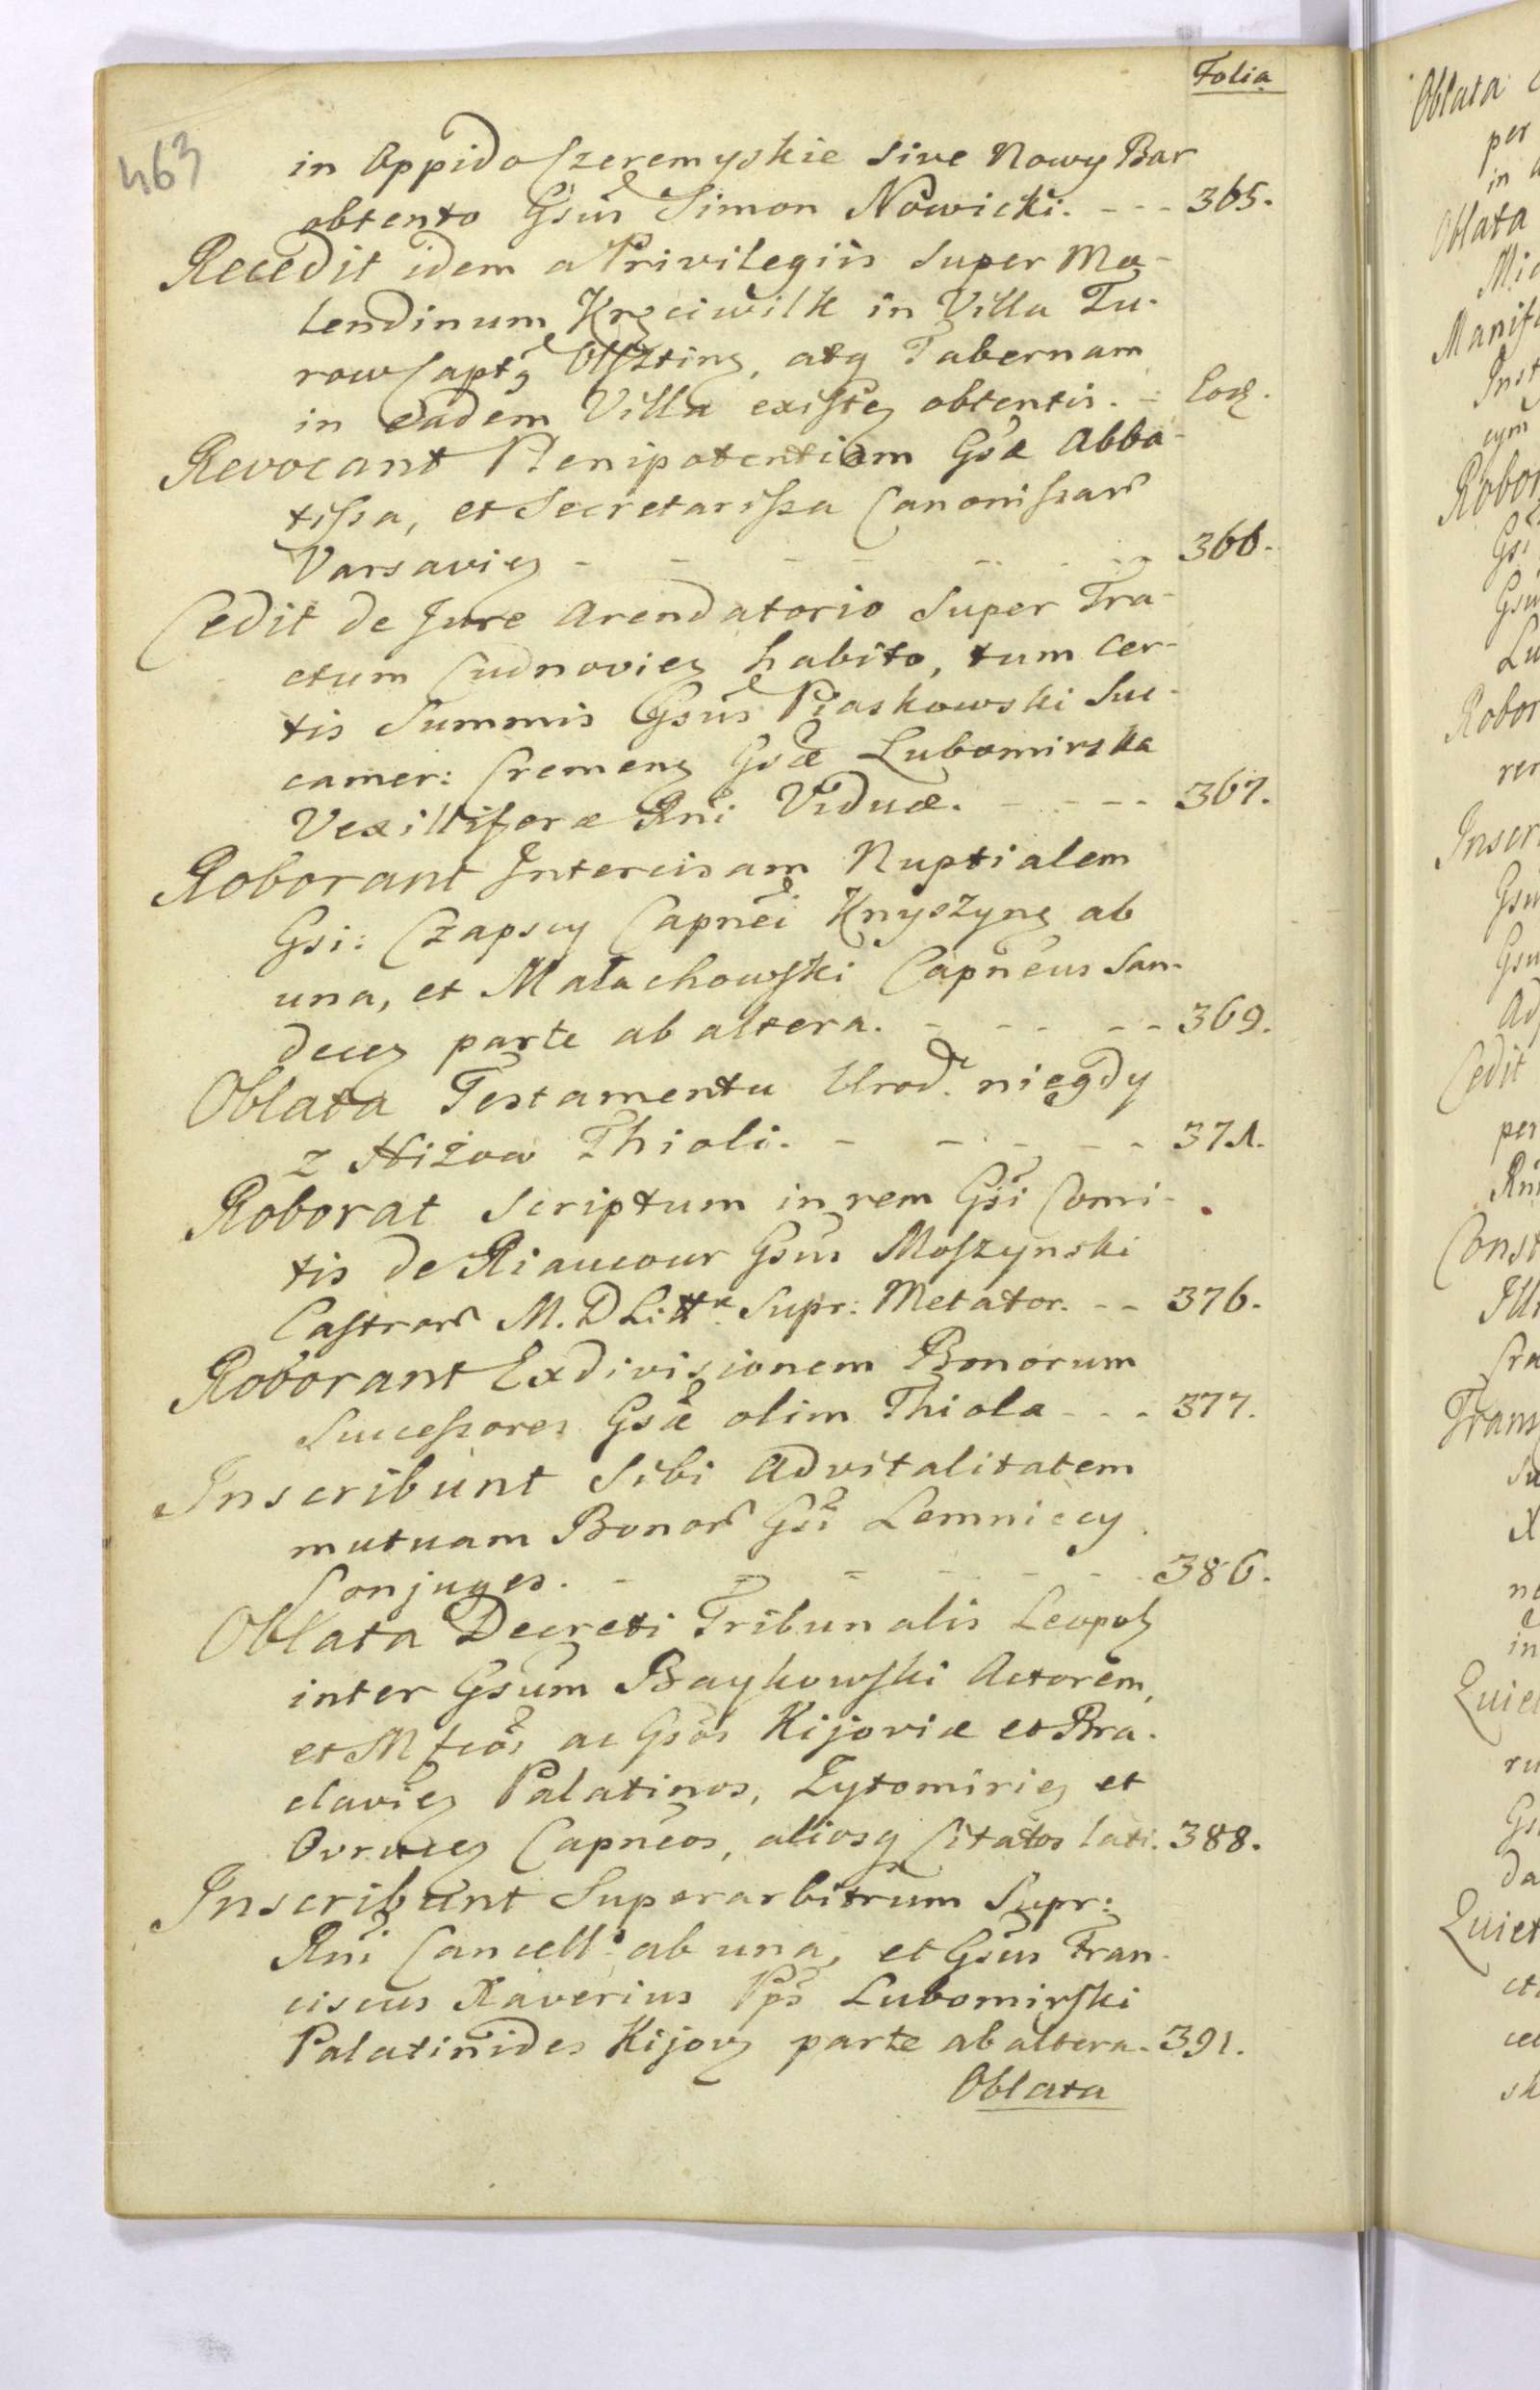 Folia
463
in Oppido Czeremyskie sive Nowy Bar
obtento Gsus Simon Nowicki. - - - 365.
Recedit idem a Privilegiis super Mo-
lendinum Krzciwilk in Villa Tu-
row Captą Olsztinę, atq Tabernam
in eadem Villa existeę obtentis. - Eodę.
Revocant Plenipotentiam Gsæ Abba-
tissa, et Secretarissa Canonissar
Varsavieę - - - - - - 366.
Cedit de Jure Arendatorio super Tra-
ctum Cudnovieę habito, tum cer-
tis Summis Gsus Piaskowski Suc-
camer: Cremenę Gsæ Lubomirska
Vexilliferæ Rni Viduæ. - - - - 367.
Roborant Intercisam Nuptialem
Gsi: Czapscy Capnei Knyszynę ab
una, et Małachowski Capneus San-
deceę parte ab altera. - - - - 369.
Oblata Testamentu Urod. niegdy
z Hiżow Thioli. - - - - - 371.
Roborat Scriptum in rem Gsi Comi-
tis de Riaucour Gsus Moszynski
Castror M. D Litt. Supr: Metator. - - 376.
Roborant Exdivisionem Bonorum
Successores Gsæ olim Thiola - - - 377.
Inscribunt Sibi Advitalitatem
mutuam Bonor Gsi Lemniccy
Conjuges. - - - - - - 386.
Oblata Decreti Tribunalis Leopolę
inter Gsum Baykowski Actorem,
et Mfcos ac Gsos Kijoviæ et Bra-
clavieę Palatinos, Zytomirieę et
Ovruceę Capneos, aliosq Citatos lati. 388.
Inscribunt Superarbitrum Supr:
Rni Cancell: ab una, et Gsus Fran-
ciscus Xaverius Pps Lubomirski
Palatinides Kijovę parte ab altera. 391.
Oblata